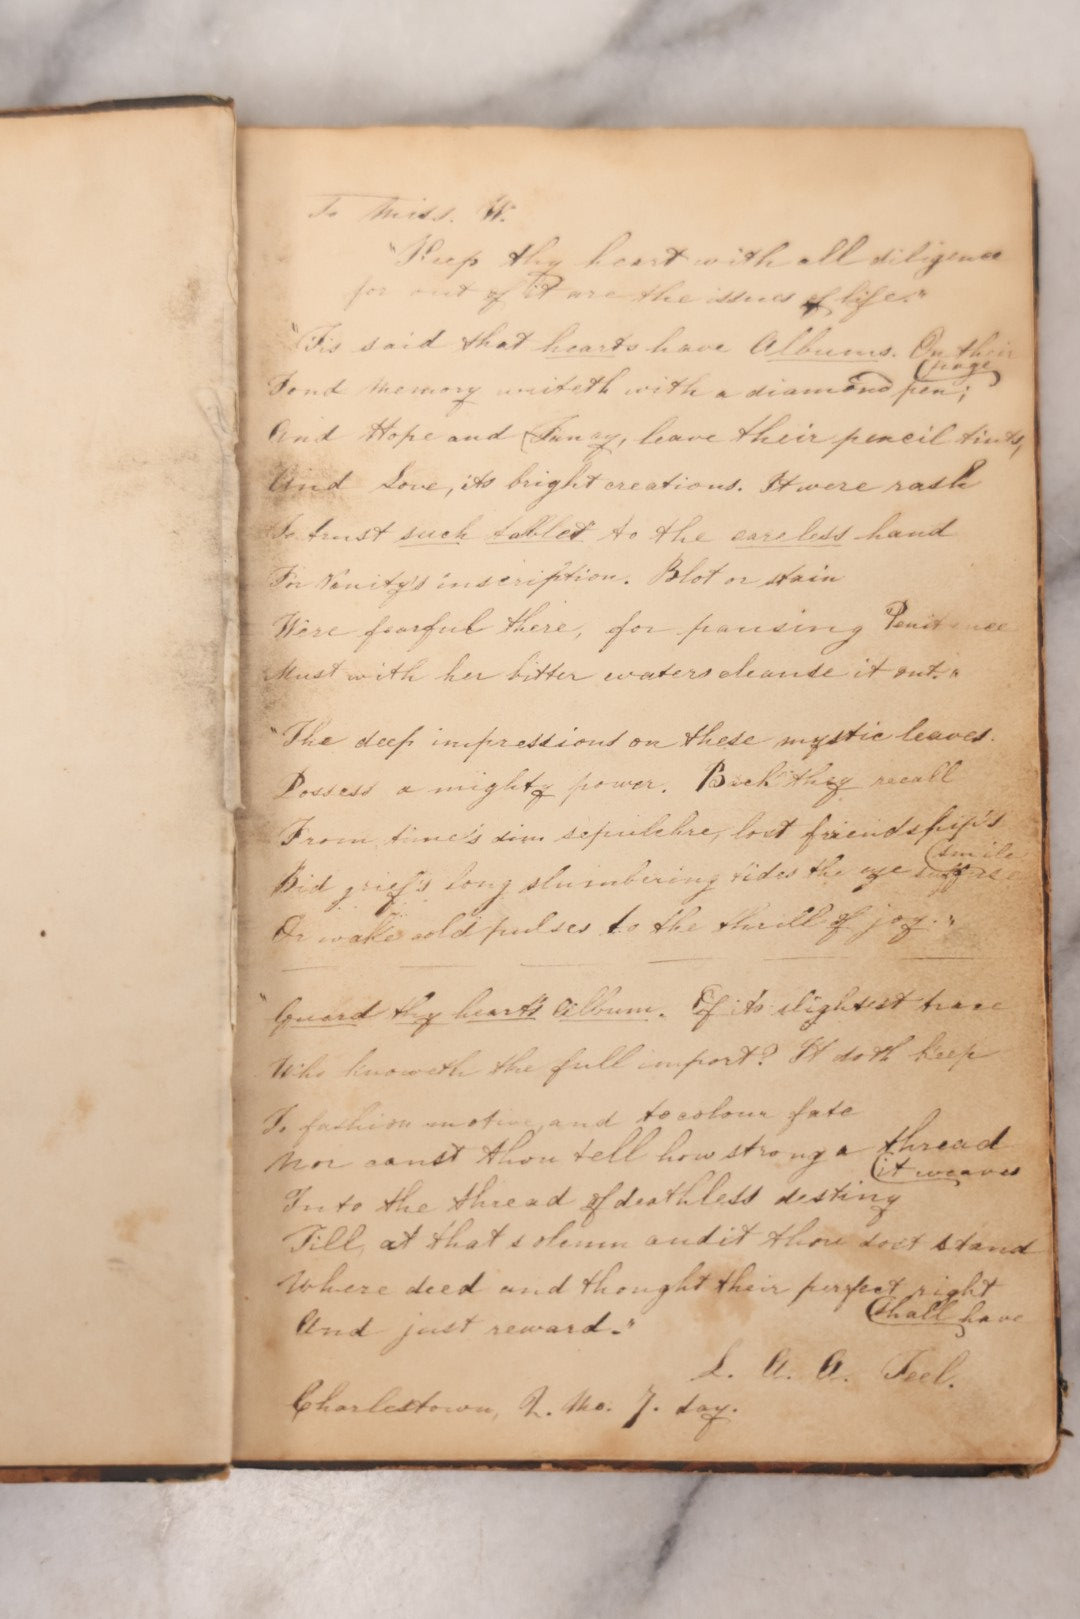 To Miss. W.
"Keep thy heart with all diligence
for out of it are the issues of life."
"Tis said that hearts have Albums. On their
page
Fond Memory writeth with a diamond pen;
And Hope and Fancy, leave their pencil tints,
And Love, its bright creations. It were rash
To trust such tablet to the careless hand
For Vanity's inscription. Blot or stain
Were fearful there, for pausing Penitence
Must with her bitter waters cleanse it out."
"The deep impressions on these mystic leaves.
Possess a mighty power. Back they recall
From time's dim sepulchre, lost friendship's
smile
Bid grief's long slumbering tides the eye suffuse
Or wake cold pulses to the thrill of joy."
"Guard thy heart's Album. Of its slightest trace
Who knoweth the full import? It doth keep
To fashion motive, and to colour fate
Nor canst thou tell how strong a thread
it weaves
Into the thread of deathless destiny
Till, at that solemn audit thou dost stand
Where deed and thought their perfect right
Shall have
And just reward."
L. A. A. Feel.
Charlestown, 2. Mo. 7. day.